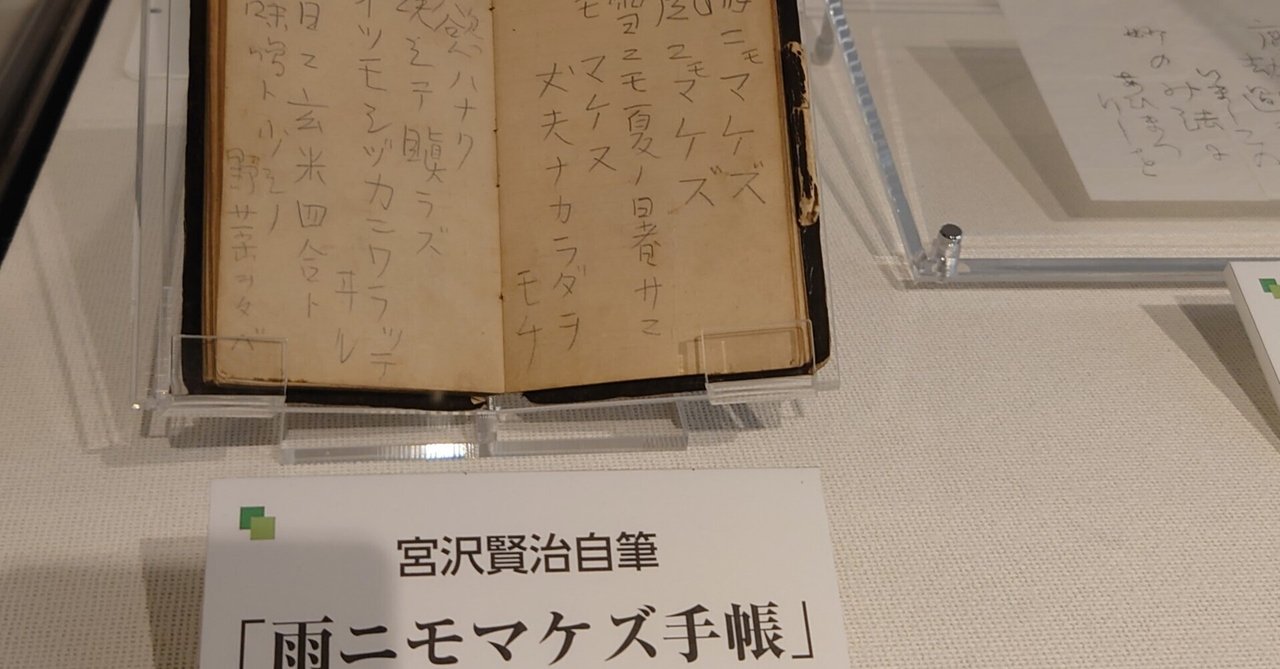 雨ニモマケズ
風ニモマケズ
雪ニモ夏ノ暑サニ
モ マケヌ
丈夫ナカラダヲ
モチ
慾ハナク
決シテ瞋ラズ
イツモシヅカニワラッテ
ヰル
一日ニ玄米四合ト
味噌ト少シノ
野菜ヲタベ
宮沢賢治自筆
「雨ニモマケズ手帳」